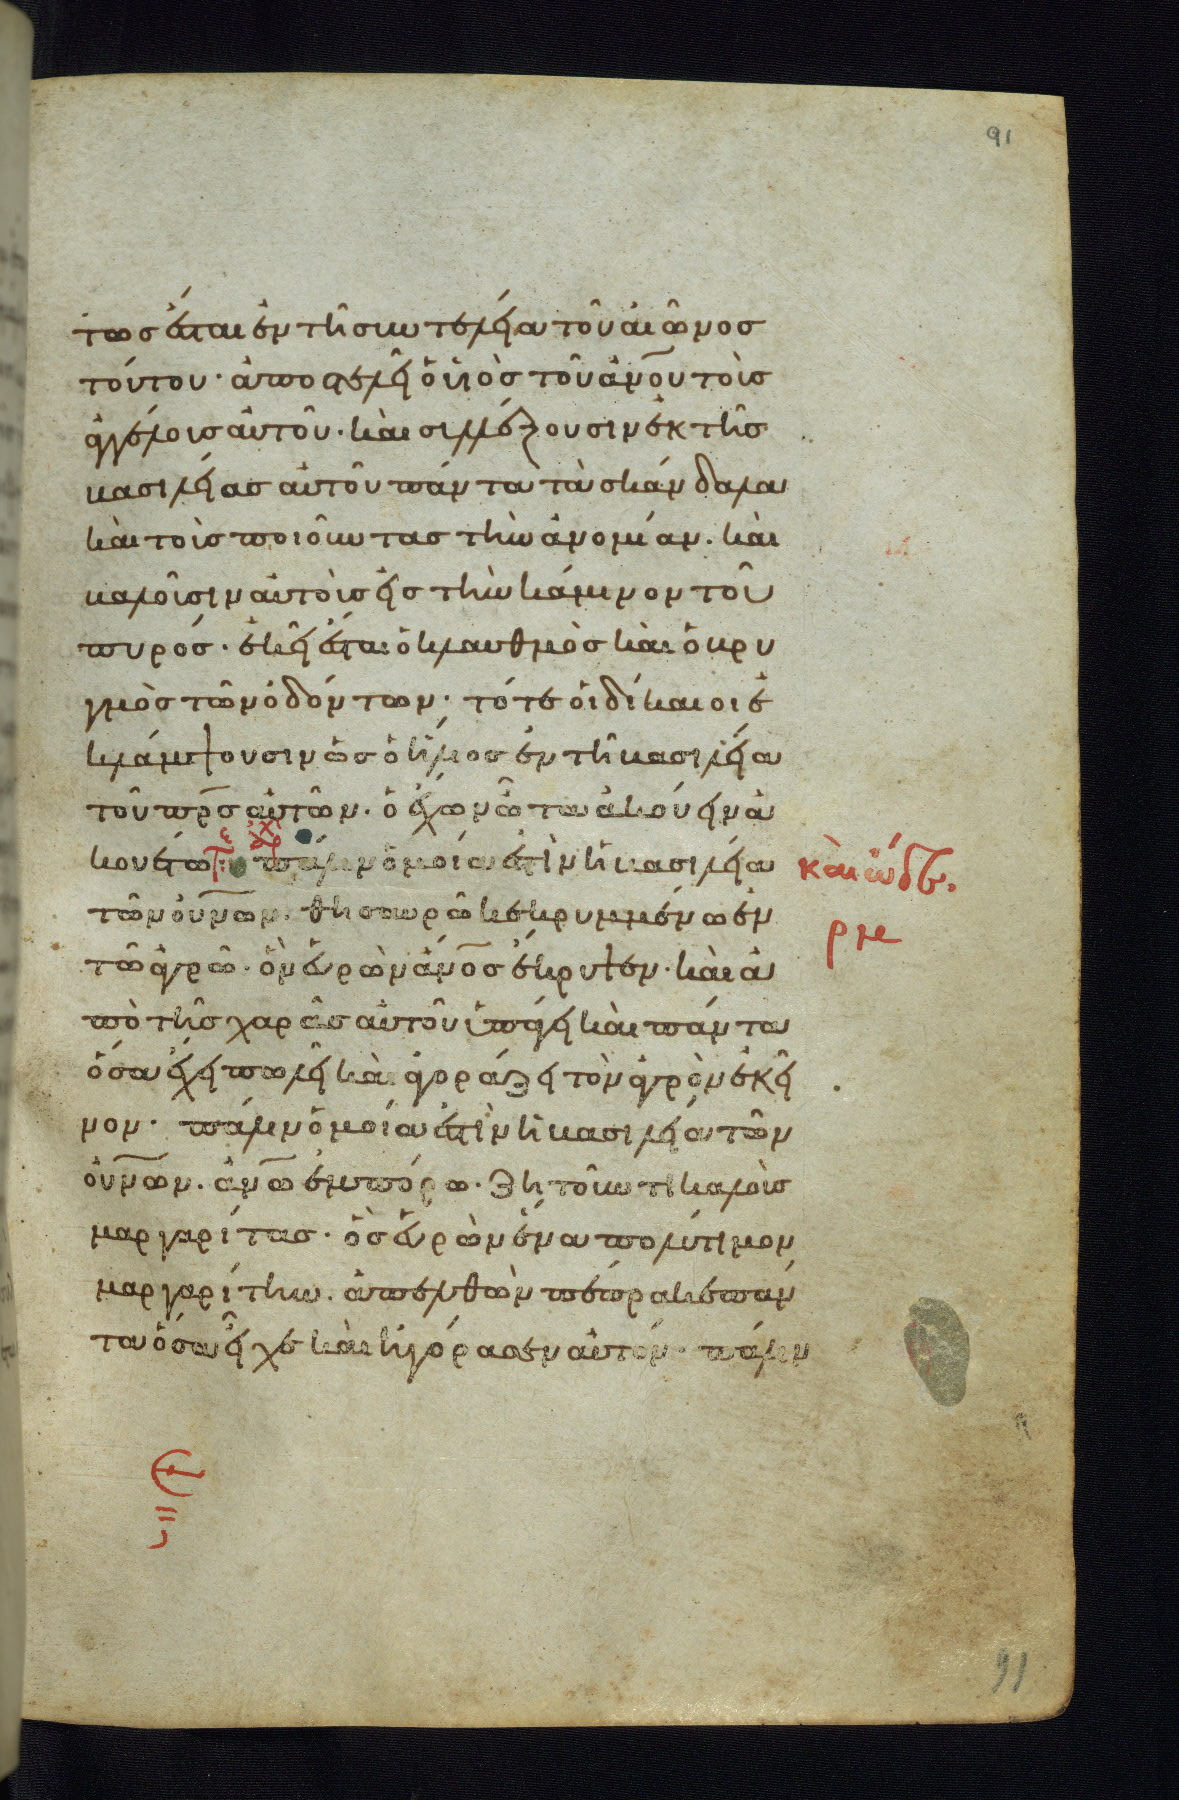 91
τωσ ἔσται ἐν τῆ συντελεία τοῦ αἰῶνοσ
τούτου· ἀποστελεῖ ὁ υἱὸσ τοῦ ἀν̅ου τοὺσ
ἀγγέλουσ αὐτοῦ· καὶ συλλέξουσιν ἐκ τῆσ
βασιλείασ αὐτοῦ πάντα τὰ σκάνδαλα
καὶ τοὺσ ποιοῦντασ τὴν ἀνομίαν. καὶ
βαλοῦσιν αὐτοὺσ εἰσ τὴν κάμινον τοῦ
πυρόσ· ἐκεῖ ἔσται ὁ κλαυθμὸσ καὶ ὁ βρυ
γμὸσ τῶν ὀδόντων· τότε οἱ δίκαιοι ἐ
κλάμψουσιν ὡσ ὁ ἥλιοσ ἐν τῆ βασιλεία
τοῦ πρ̅σ αὐτῶν. ὁ ἔχων ὦτα ἀκούειν ἀ
κουέτω: πάλιν ὁμοία ἐστὶν ἡ βασιλεία
τῶν οὐν̅ων. θησαυρῶ κεκρυμμένω ἐν
τῶ ἀγρῶ· ὃν εὑρὼν ἄν̅οσ ἔκρυψεν· καὶ ἀ
πὸ τῆσ χαρᾶσ αὐτοῦ ὑπάγει καὶ πάντα
ὅσα ἔχει πωλεῖ καὶ ἀγοράζει τὸν ἀγρὸν ἐκεῖ
νον· πάλιν ὁμοία ἐστὶν ἡ βασιλεία τῶν
οὐν̅ων. ἀν̅ω ἐμπόρω· ζητοῦντι καλοὺσ
μαργαρίτασ· ὃσ εὑρὼν ἕνα πολύτιμον
μαργαρίτην. ἀπελθὼν πέπρακε πάν
τα ὅσα εἶχε καὶ ἠγόρασεν αὐτόν· πάλιν
ρμ
91